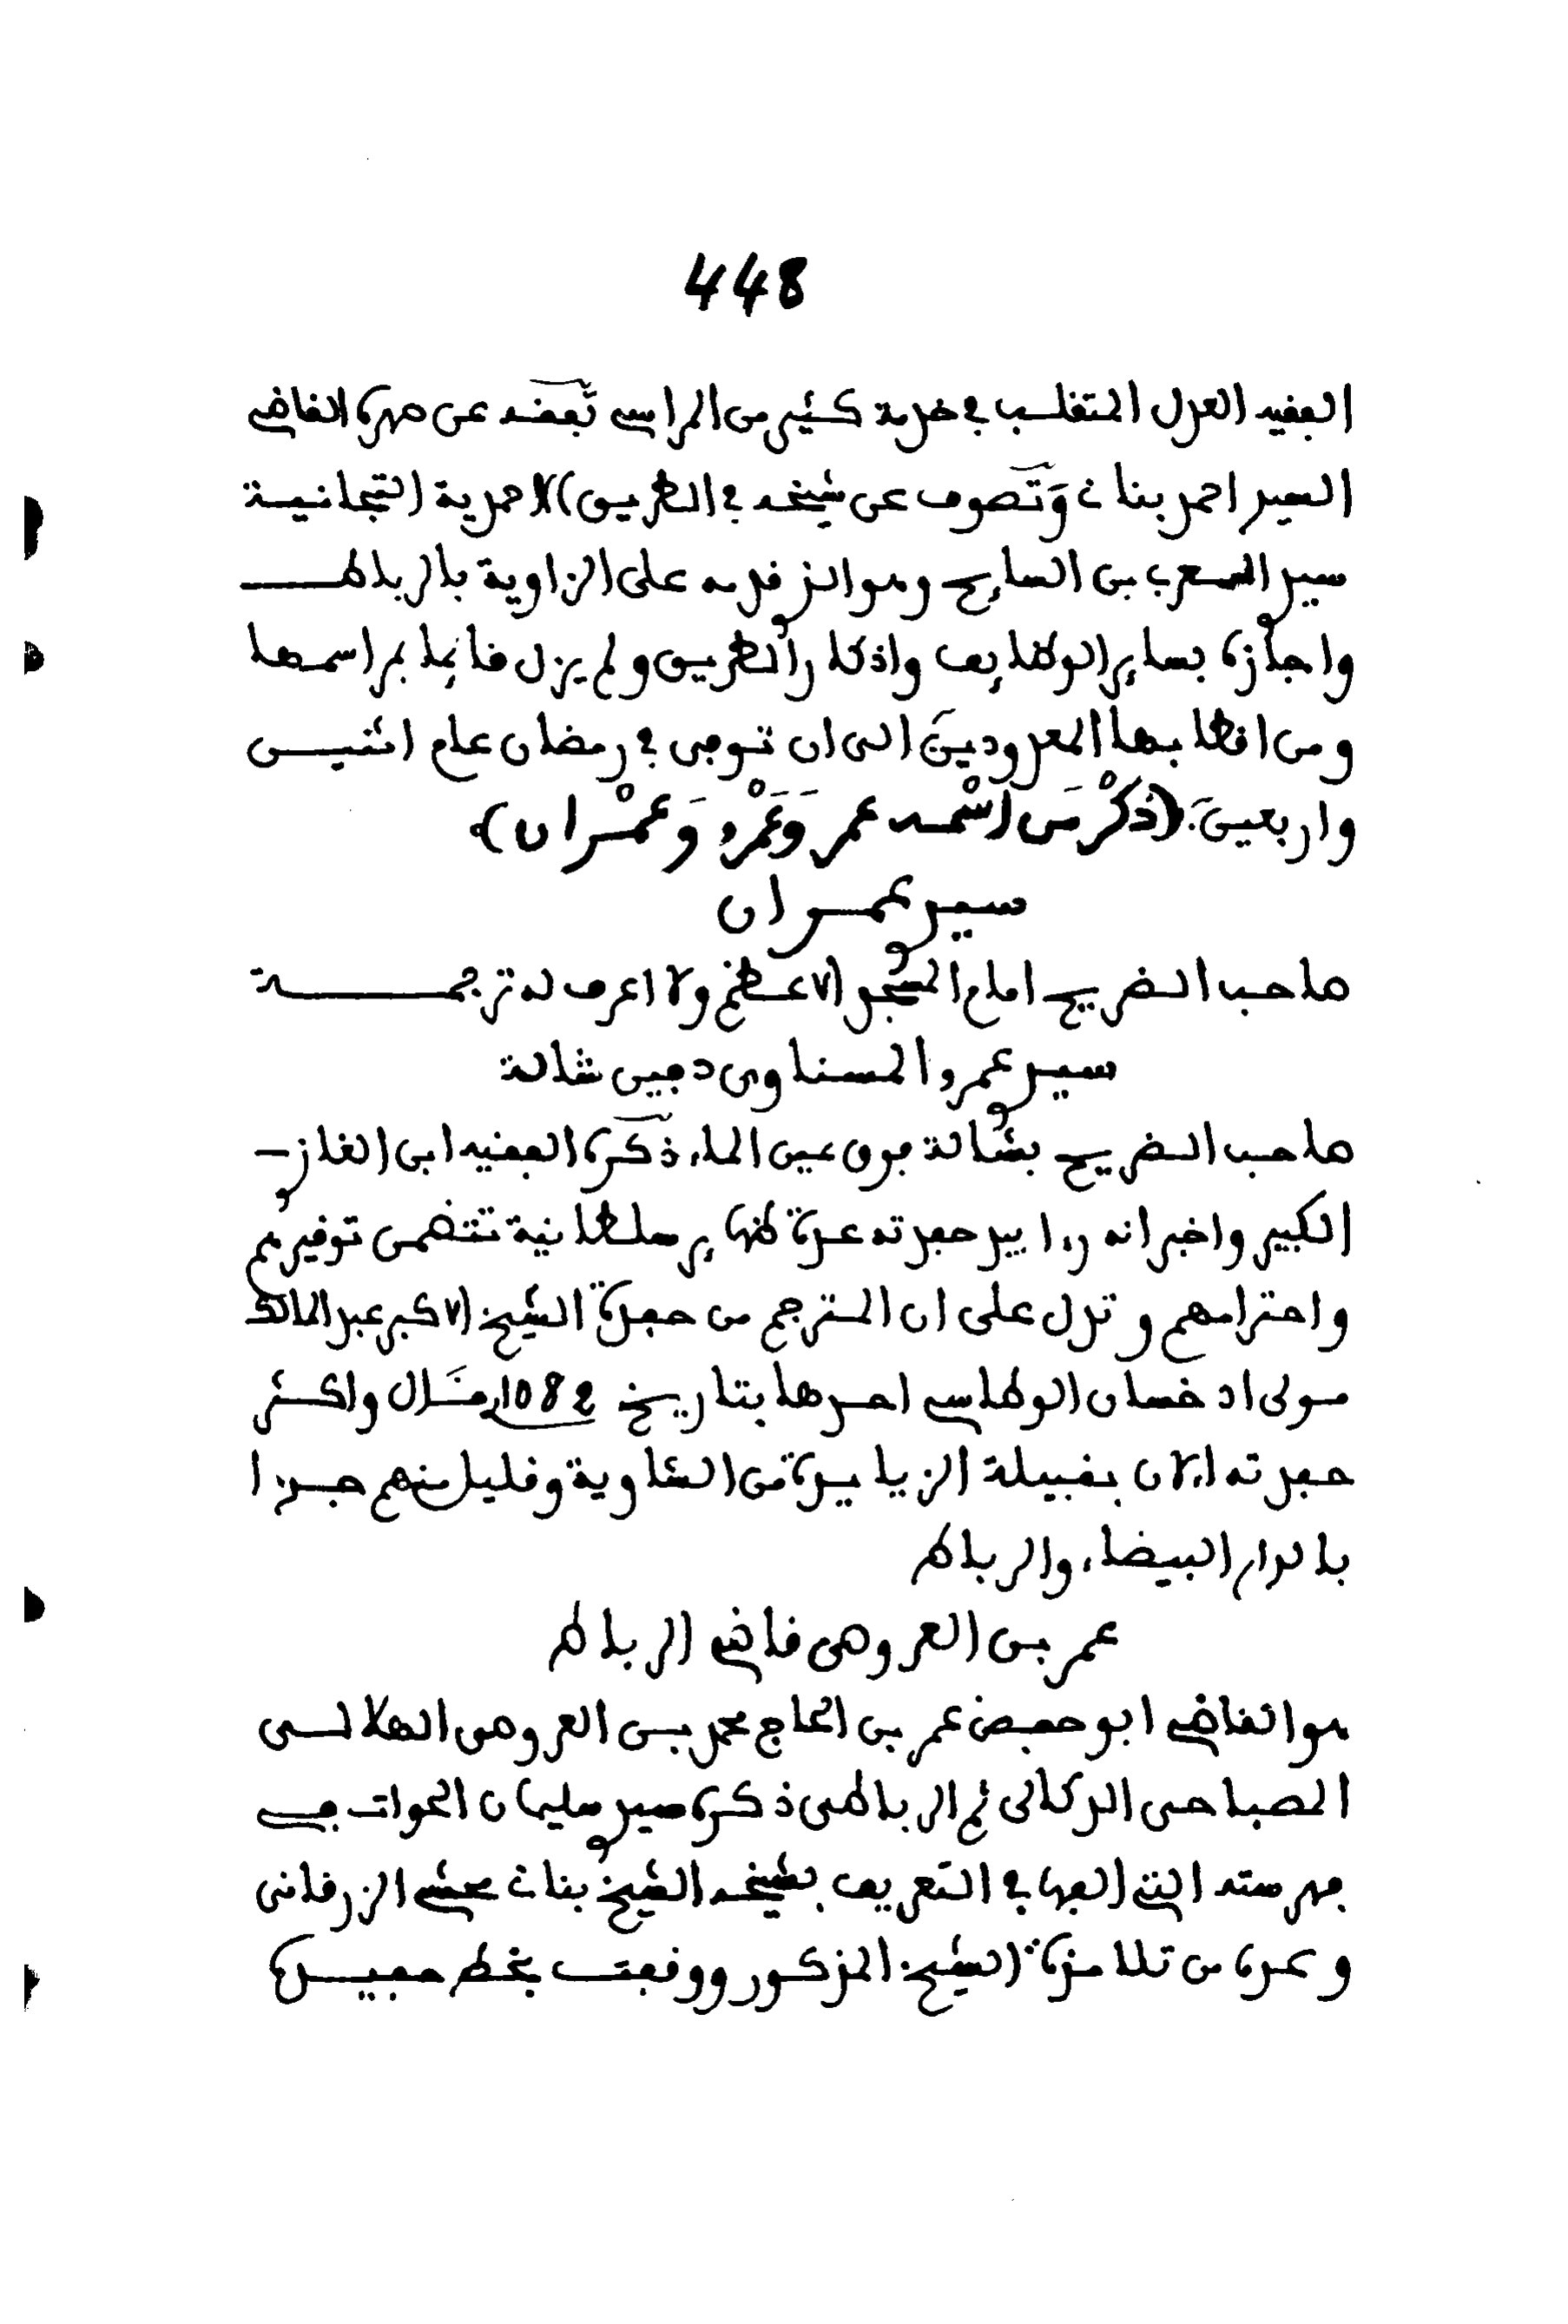 448
الفقيه العدل المتقلب في خدمة كثير من المراسى تفقه عن صهره القاضي
السيد احمد بناني وَتَصوف عن شيخه في الطريق الاحمدية التجانية
سيدي العربي بن السايح وهو الذي قدمه على الزاوية بالرباط
واجازه بساير الوظايف واذكار الطريق ولم يزل قايما بمراسمها
ومن اقطابها المعدودين الى ان توفى في رمضان عام اثنين
واربعين. (ذكْر مَن اسْمه عمر وَعَمْرو وَعمْران)
سيدي عمران
صاحب الضريح امام السجن الاعظم ولا اعرف له ترجمة
سيدي عمرو المسناوي دفين شالة
صاحب الضريح بشالة فوق عين الماء ذكره الفقيه ابن الغازي
الكبير واخبر انه رءا بيد حفدته عدة ظهاير سلطانية تتضمن توقيرهم
واحترامهم وتدل على ان المترجم من حفدة الشيخ الاكبر عبد المالك
مولى اد خسان الوطاسي احدها بتاريخ 1082 قال واكثر
حفدته الان بقبيلة الزيايدة من الشاوية وقليل منهم جدا
بالدار البيضاء والرباط
عمر بن العروصى قاضي الرباط
هو القاضي ابو حفص عمر بن الحاج محمد بن العروصى الهلالى
الصباحى الدكالى ثم الرباطى ذكره سيدي سليمان الحوات في
فهرسته التي الفها في التعريف بشيخه الشيخ بناني محشي الزرقانى
وعده من تلامذة الشيخ المذكور ووقفت بخط حفيده